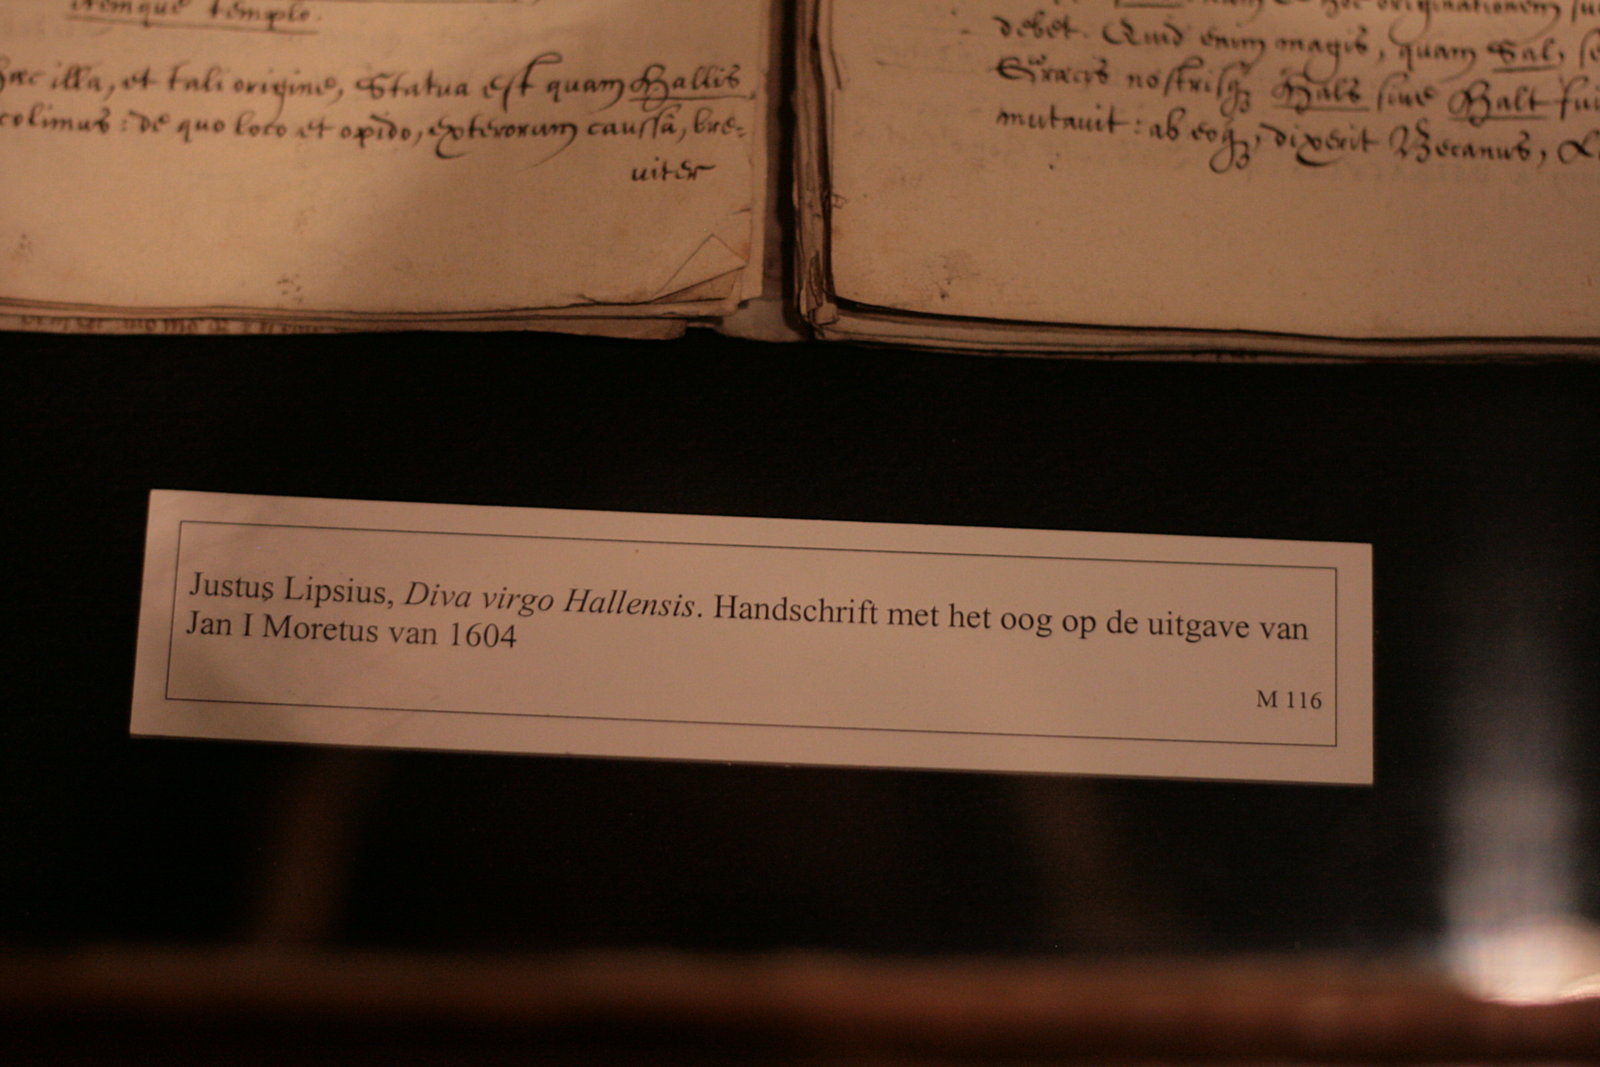 templo.
illa, et tali origine, Statua est quam Hallis
colimus: de quo loco et opido, exterorum caussâ, bre-
uiter
debet. Quid enim magis, quam Sal,
Graecis nostrisq; Hals siue Halt
mutauit: ab eoq;, dixerit Becanus,
Justus Lipsius, Diva virgo Hallensis. Handschrift met het oog op de uitgave van
Jan I Moretus van 1604
M 116